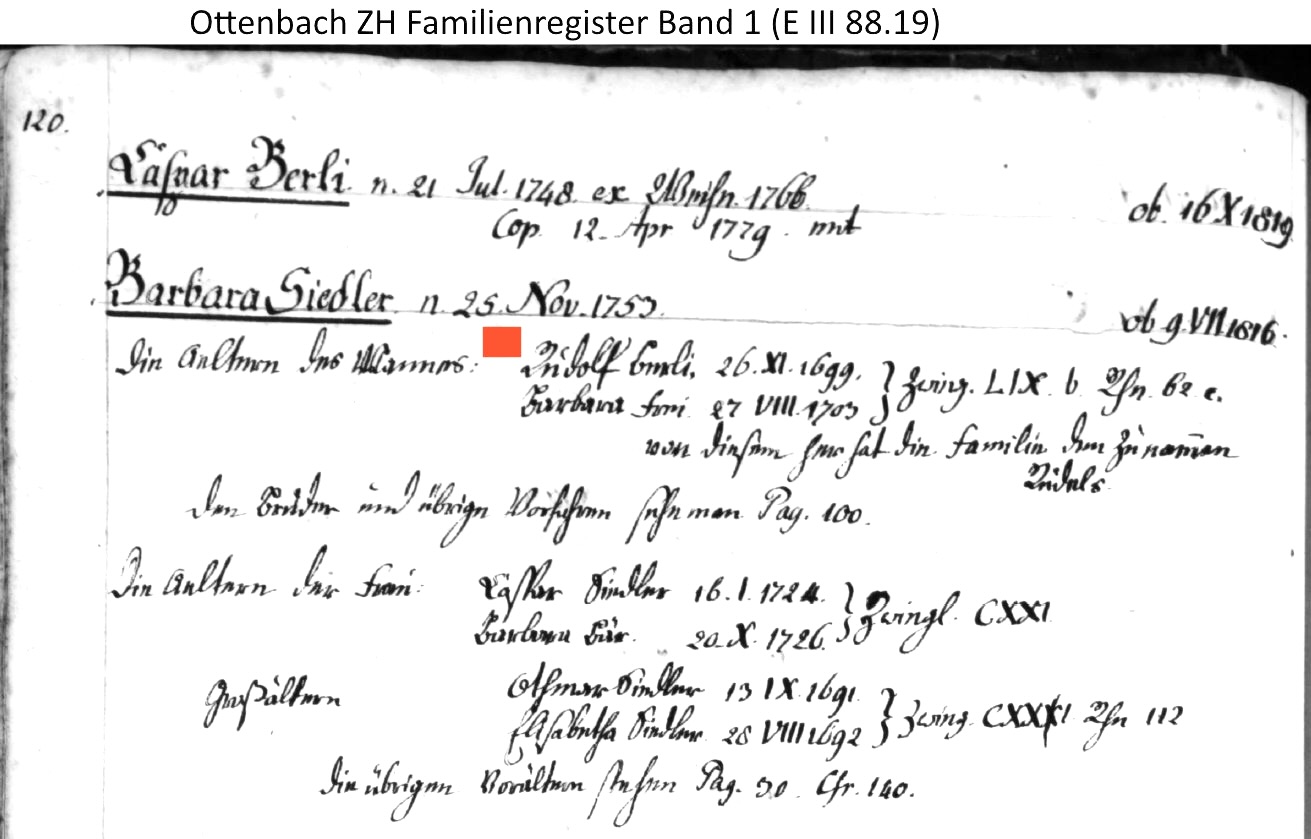 Ottenbach ZH Familienregister Band 1 (E III 88.19)
120.
Caspar Berli n. 21 Jul. 1748. ex 1766.
Cop. 12. Apr 1779. mit
ob. 16 X 1819
Barbara Siedler n. 25. Nov. 1753.
ob 9 VII 1816.
Die Aeltern des Mannes: Rudolf Berli, 26. XI. 1699. } Zwing. LIX. b. Rhn. 62 c.
Barbara Frei 27 VIII. 1703
von diesem her hat die Familie den Zunamen
Rudels
Den Bruder und übrige Vorfahren sehe man Pag. 100.
Die Aeltern der Frau: Caspar Siedler 16. I. 1724. } Zwingl. CXXI
Barbara Bär. 20. X. 1726.
Großältern Othmar Siedler 13 IX. 1691. } Zwing. Rhn 112
Elisabetha Siedler 28 VIII 1692
die übrigen Vorältern stehen Pag. 30. Cfr. 140.